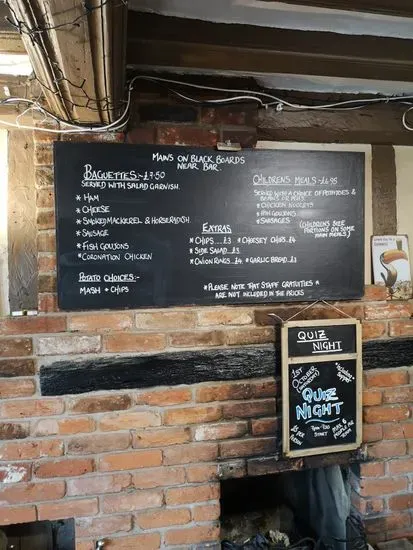 MAINS ON BLACK BOARDS
NEAR BAR.
BAGUETTES:~£7.50
SERVED WITH SALAD GARNISH.
* HAM
* CHEESE
* SMOKED MACKEREL & HORSERADISH
* SAUSAGE
* FISH GOUJONS
* CORONATION CHICKEN
POTATO CHOICES:-
MASH + CHIPS
EXTRAS
* CHIPS...£3 * CHEESEY CHIPS £4
* SIDE SALAD...£3
* ONION RINGS...£4 * GARLIC BREAD..£3
CHILDRENS MEALS:~£6.95
SERVED WITH A CHOICE OF POTATOES &
BEANS OR PEAS.
* CHICKEN NUGGETS
* FISH GOUJONS
* SAUSAGES
(CHILDRENS SIZE
PORTIONS ON SOME
MAIN MEALS)
* PLEASE NOTE THAT STAFF GRATUITIES *
ARE NOT INCLUDED IN THE PRICES
QUIZ
NIGHT
1ST
OCTOBER
QUIZ
NIGHT
START